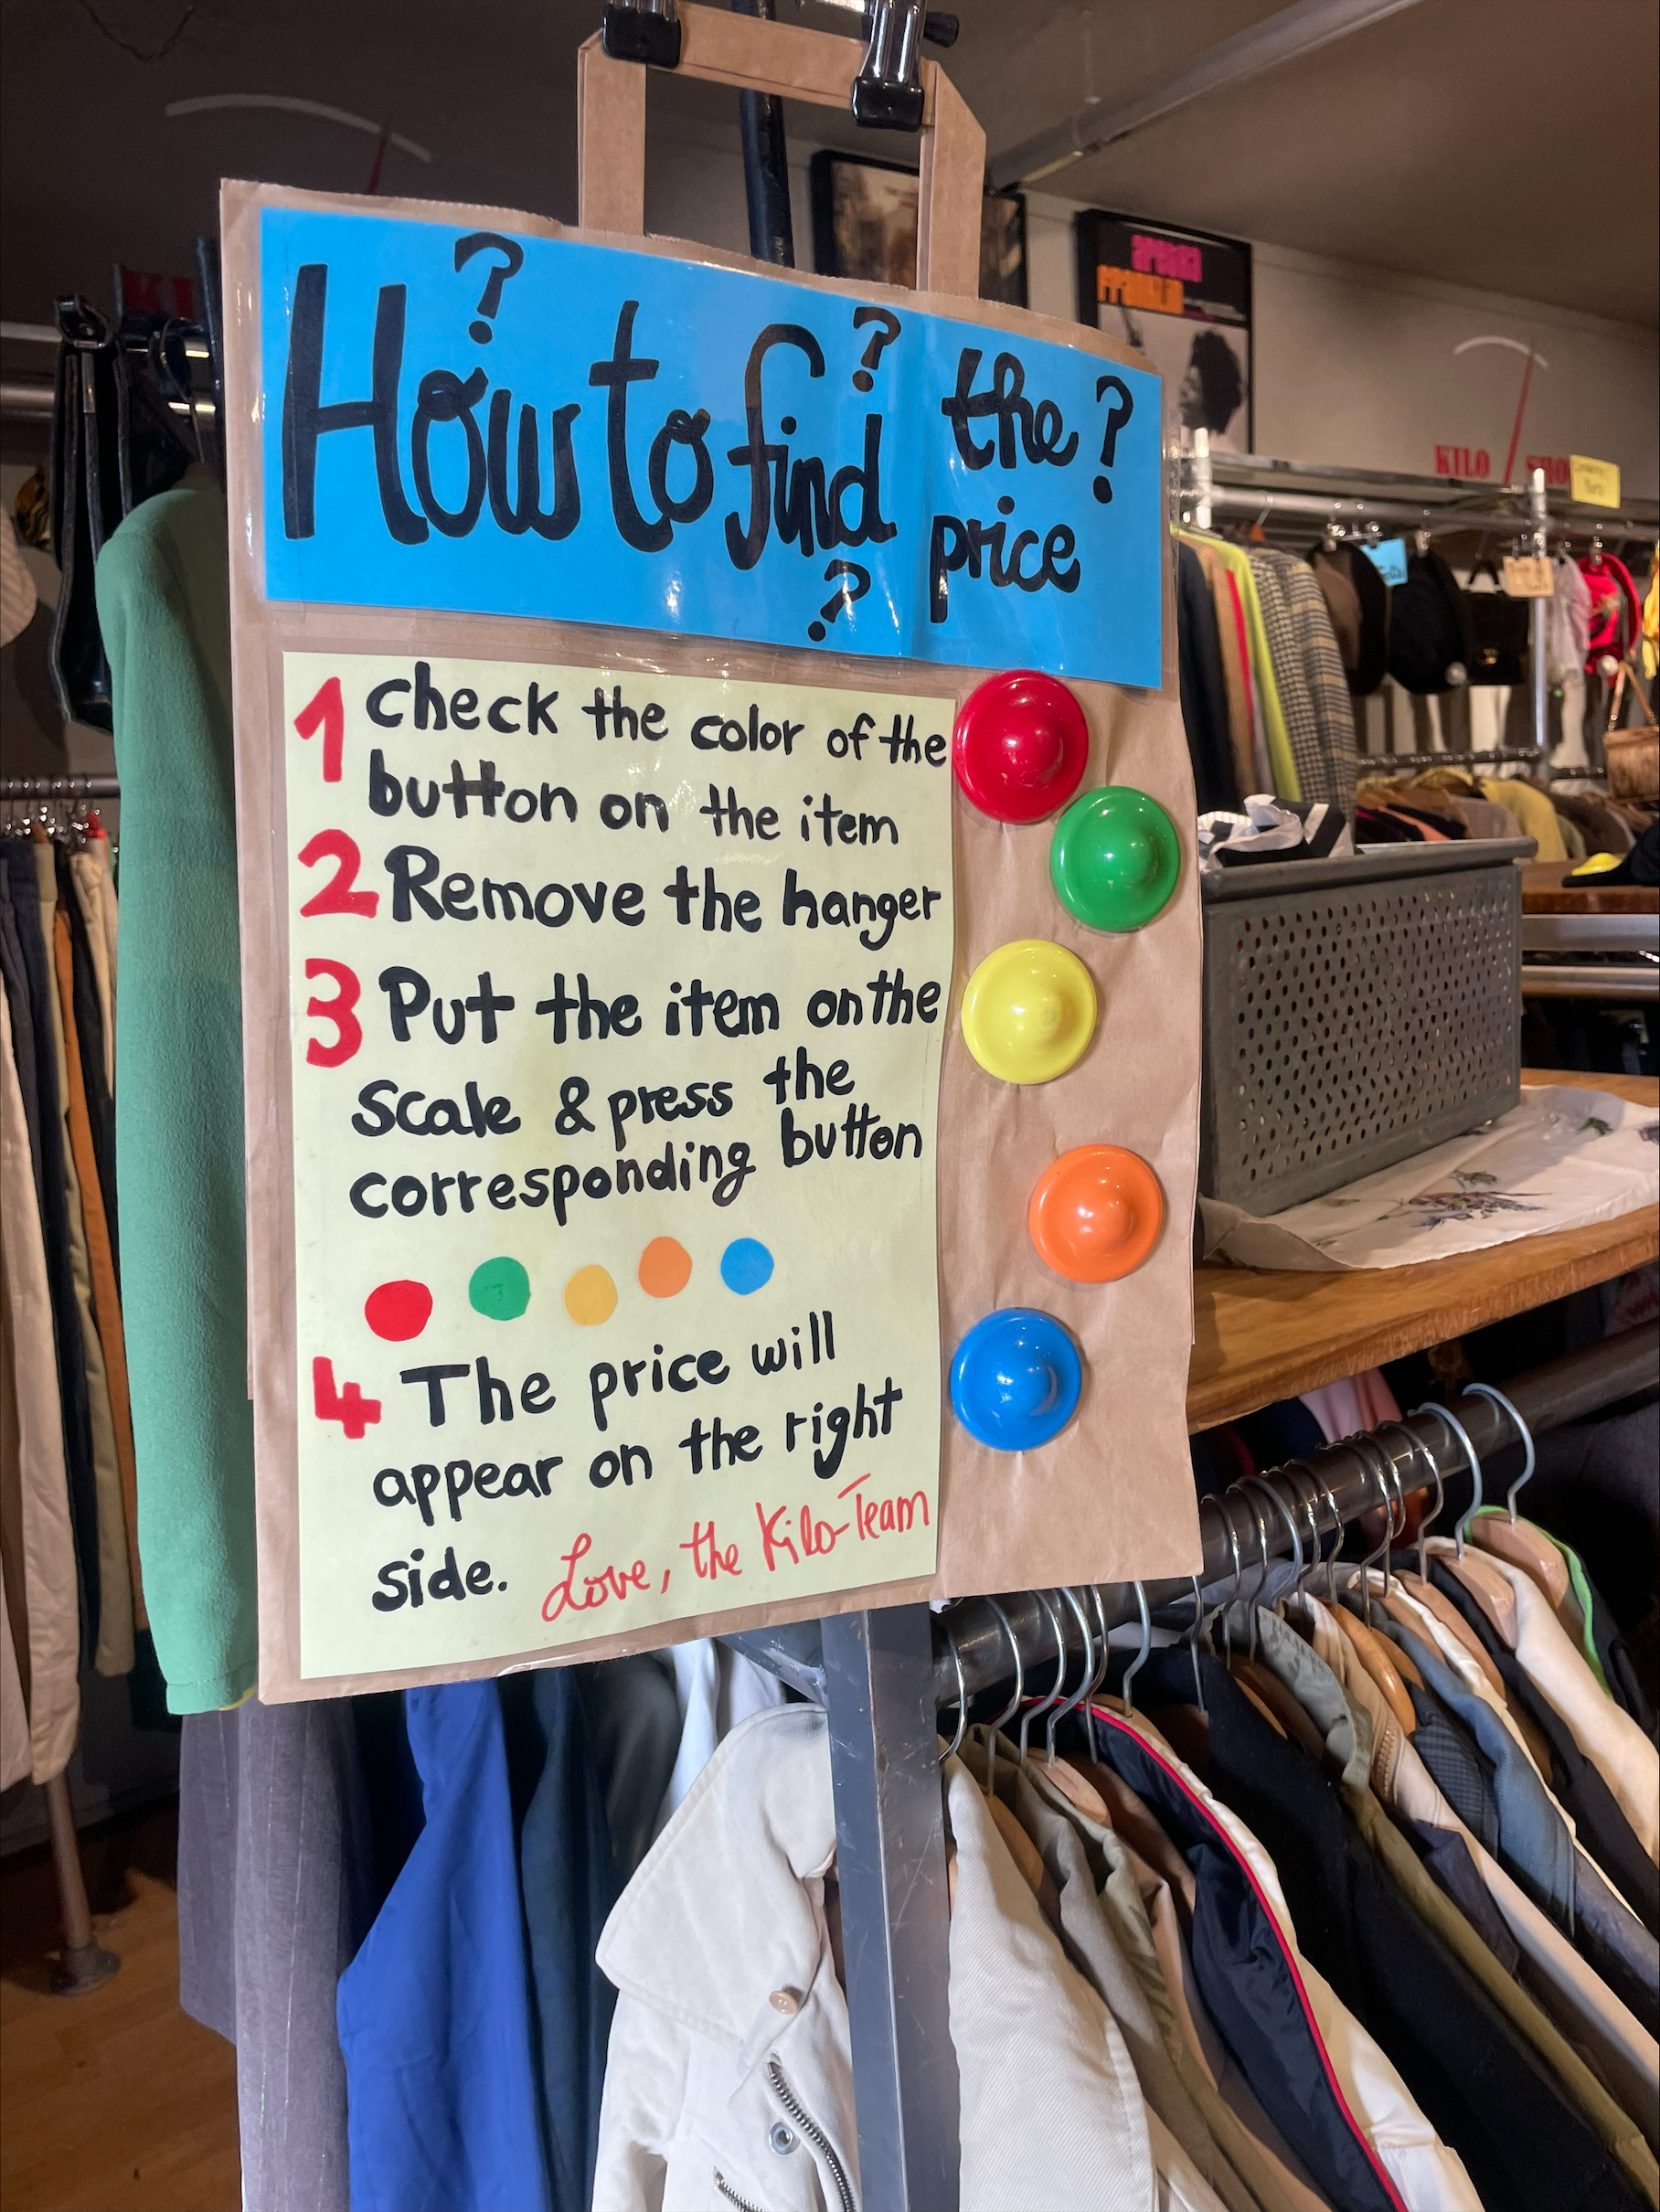 How to find the price
? ? ? ?
1 Check the color of the
button on the item
2 Remove the hanger
3 Put the item on the
Scale & press the
corresponding button
4 The price will
appear on the right
side. Love, the Kilo-Team
KILO SHO
KI